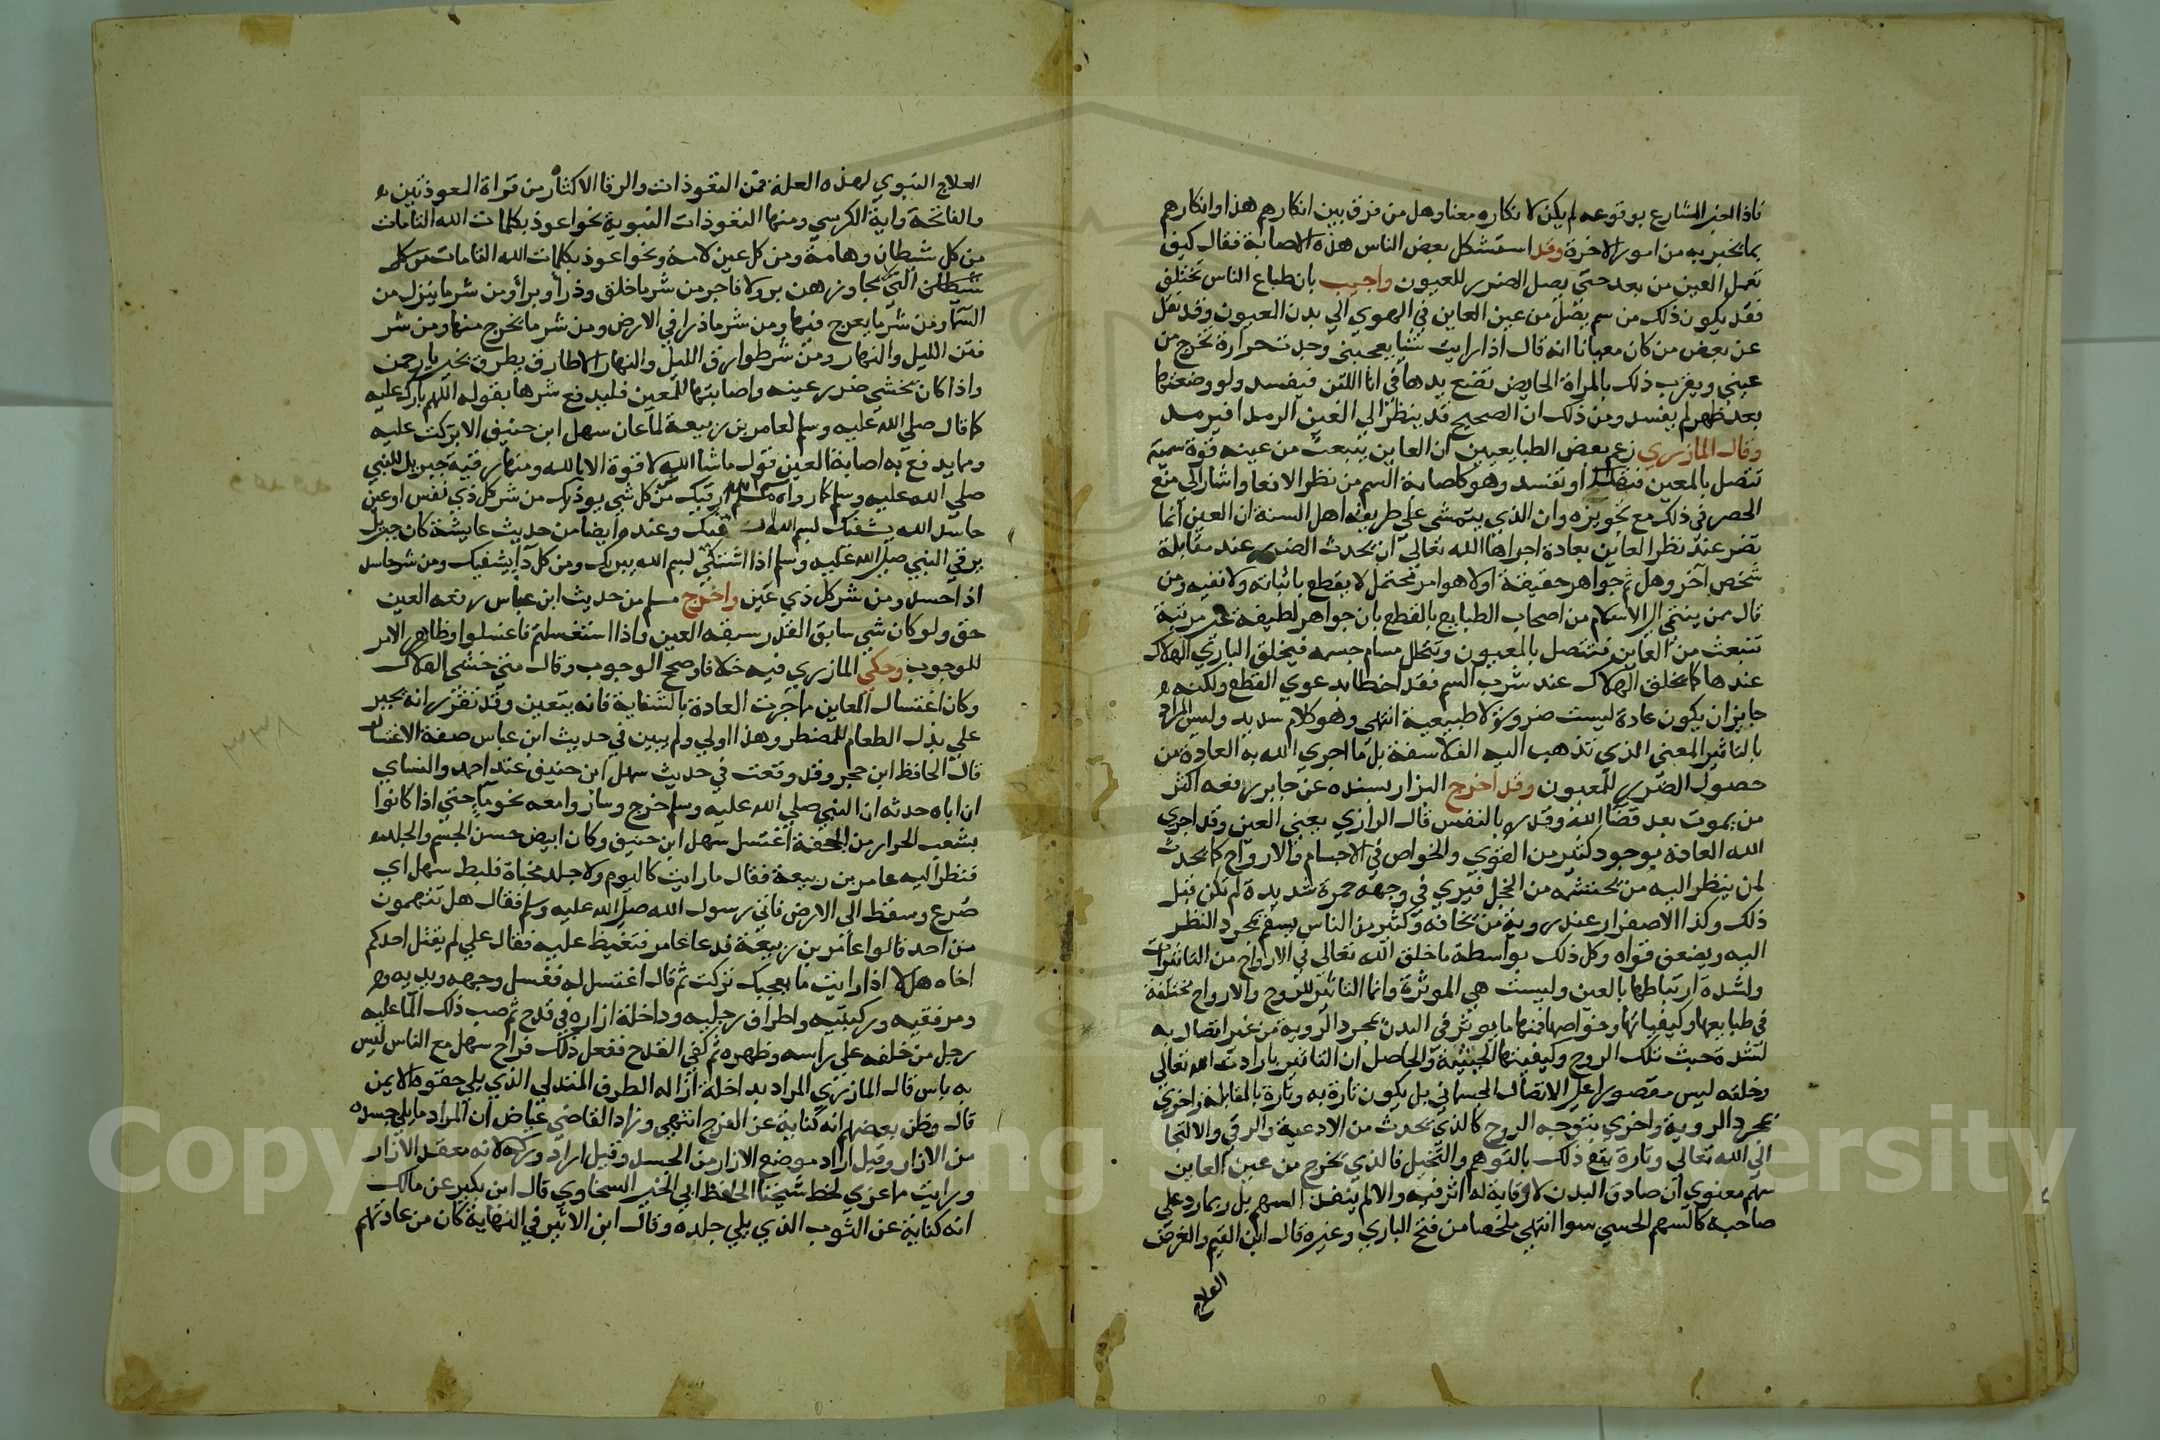 فاذا اخبر الشارع بوقوعه لم يكن لانكاره معنا وهل من فرق بين انكارهم هذا وانكارهم
بما يخبر به من امور الاخرة وقد استشكل بعض الناس هذه الاصابة فقال كيف
تعمل العين من بعد حتي يصل الضرر للمعيون واجيب بان طباع الناس تختلف
فقد يكون ذلك من سم يصل من عين العاين في الهوي الي بدن المعيون وقد نقل
عن بعض من كان معيانا انه قال اذا رايت شيا يعجبني وجدت حرارة تخرج من
عيني ويقرب ذلك بالمراة الحايض تضع يدها في انا اللبن فيفسد ولو وضعتها
بعد طهرها لم يفسد ومن ذلك ان الصحيح قد ينظر الي العين الرمدا فيرمد
وقال المازري زعم بعض الطبايعيين ان العاين ينبعث من عينه قوة سمية
تتصل بالمعين فيهلك او تفسد وهو كاصابة السم من نظر الافعا واشار الي منع
الحصر في ذلك مع تجويزه وان الذي يتمشي علي طريقة اهل السنة ان العين انما
تضر عند نظر العاين بعادة اجراها الله تعالي ان يحدث الضرر عند مقابلة
شخص آخر وهل ثم جواهر حقيقة اولا هو امر محتمل لا يقطع باثباته ولا نفيه ومن
قال ممن ينتمي الي الاسلام من اصحاب الطبايع بالقطع بان جواهر لطيفة غير مرئية
تنبعث من العاين فتتصل بالمعيون وتتخلل مسام جسمه فيخلق الباري الهلاك
عندها كما يخلق الهلاك عند شرب السم فقد اخطا بدعوي القطع ولكنه
جايز ان يكون عادة ليست ضرورة ولا طبيعية انتهي وهو كلام سديد وليس المراد
بالتاثير المعني الذي تذهب اليه الفلاسفة بل ما اجري الله به العادة من
حصول الضرر للمعيون وقد اخرج البزار بسنده عن جابر رفعه اكثر
من يموت بعد قضا الله وقدره بالنفس قال الرازي يعني العين وقد اجري
الله العادة بوجود كثير من القوي والخواص في الاجسام والارواح كما يحدث
لمن ينظر اليه من يحتشمه من الخجل فيري في وجهه حمرة شديدة لم تكن قبل
ذلك وكذا الاصفرار عند روية من يخافه وكثير من الناس يسقم بمجرد النظر
اليه ويضعف قواه وكل ذلك بواسطة ما خلق الله تعالي في الارواح من التاثيرات
ولشدة ارتباطها بالعين وليست هي الموثرة وانما التاثير للروح والارواح مختلفة
في طبايعها وكيفياتها وخواصها فمنها ما يوثر في البدن بمجرد الروية من غير اتصال به
لشدة خبث تلك الروح وكيفيتها الخبيثة والحاصل ان التاثير بارادت الله تعالي
وخلقه ليس مقصورا علي الاتصال الجسماني بل يكون تارة به وتارة بالمقابلة واخري
بمجرد الروية واخري بتوجه الروح كالذي يحدث من الادعية والرقي والالتجا
الي الله تعالي وتارة يقع ذلك بالتوهم والتخيل فالذي يخرج من عين العاين
سهم معنوي ان صادف البدن لا وقاية له اثر فيه والا لم ينفذ السهم بل ربما رد علي
صاحبه كالسهم الحسي سوا انتهي ملخصا من فتح الباري وغيره قال ابن القيم والغرض
العلاج
العلاج النبوي لهذه العلة فمن التعوذات والرقا الاكثار من قراة المعوذتين
والفاتحة واية الكرسي ومنها التعوذات النبوية نحو اعوذ بكلمات الله التامات
من كل شيطان وهامة ومن كل عين لامة ونحو اعوذ بكلمات الله التامات من كل
شيطان التي لا يجاوزهن بر ولا فاجر من شر ما خلق وذرأ وبرأ ومن شر ما ينزل من
السما ومن شر ما يعرج فيها ومن شر ما ذرا في الارض ومن شر ما يخرج منها ومن شر
فتن الليل والنهار ومن شر طوارق الليل والنهار الا طارق يطرق بخير يا رحمن
واذا كان يخشي ضرر عينه واصابتها للمعين فليدفع شرها بقوله اللهم بارك عليه
كما قال صلي الله عليه وسلم لعامر بن ربيعة لما عان سهل ابن حنيف الا بركت عليه
ومما يدفع به اصابة العين قول ما شا الله لا قوة الا بالله ومنها رقية جبريل للنبي
صلي الله عليه وسلم كما رواه مسلم ارقيك من كل شي يوذيك من شر كل ذي نفس او عين
حاسد الله يشفيك بسم الله ارقيك وعنده ايضا من حديث عايشة كان جبريل
يرقي النبي صلي الله عليه وسلم اذا اشتكي بسم الله يبريك ومن كل دا يشفيك ومن شر حاسد
اذا حسد ومن شر كل ذي عين واخرج مسلم من حديث ابن عباس رفعه العين
حق ولو كان شي سابق القدر سبقه العين واذا استغسلتم فاغسلوا وظاهر الامر
للوجوب وحكي المازري فيه خلافا وصحح الوجوب وقال متي خشي الهلاك
وكان اغتسال العاين ما جرت العادة بالشفا به فانه يتعين وقد تقرر انه يجبر
علي بذل الطعام للمضطر وهذا اولي ولم يبين في حديث ابن عباس صفة الاغتسال
قال الحافظ ابن حجر وقد وقعت في حديث سهل ابن حنيف عند احمد والنساي
ان اباه حدثه ان النبي صلي الله عليه وسلم خرج وساروا معه نحو ما حتي اذا كانوا
بشعب الحرار من الجحفة اغتسل سهل ابن حنيف وكان ابيض حسن الجسم والجلد
فنظر اليه عامر بن ربيعة فقال ما رايت كاليوم ولا جلد مخباة فلبط سهل اي
صرع وسقط الي الارض فاتي رسول الله صلي الله عليه وسلم فقال هل تتهمون
من احد قالوا عامر بن ربيعة فدعا عامر فتغيظ عليه فقال علي لم يقتل احدكم
اخاه هلا اذا رايت ما يعجبك بركت ثم قال اغتسل له فغسل وجهه ويديه
ومرفقيه وركبتيه واطراف رجليه وداخلة ازاره في قدح ثم صب ذلك الما عليه
رجل من خلفه علي راسه وظهره ثم كفي القدح ففعل ذلك فراح سهل مع الناس ليس
به باس قال المازري المراد بداخلة ازاره الطرف المتدلي الذي يلي حقوه الايمن
قال وظن بعضهم انه كناية عن الفرج انتهي وزاد القاضي عياض ان المراد ما يلي جسده
من الازار وقيل اراد موضع الازار من الجسد وقيل اراد وركه لانه معقد الازار
ورايت ما عزي لخط شيخنا الحافظ ابي الخير السخاوي قال ابن بكير عن مالك
انه كناية عن الثوب الذي يلي جلده وقال ابن الاثير في النهاية كان من عادتهم
Copyright © King Saud University